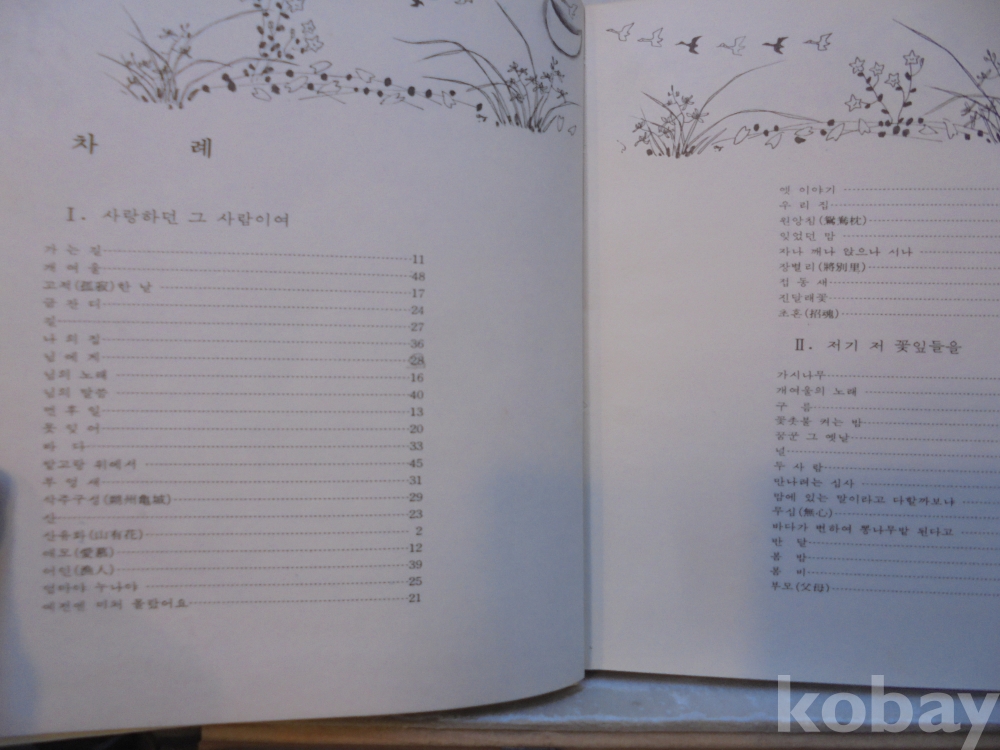 차 례
Ⅰ. 사랑하던 그 사람이여
가 는 길 11
개 여 울 48
고적(孤寂)한 날 17
금 잔 디 24
길 27
나 의 집 36
님 에 게 28
님의 노래 16
님의 말씀 40
먼 후 일 13
못 잊 어 20
바 다 33
밭고랑 위에서 45
부 엉 새 31
삭주구성(朔州龜城) 29
산 23
산유화(山有花) 2
애모(愛慕) 12
어인(漁人) 39
엄마야 누나야 25
예전엔 미처 몰랐어요 21
옛 이야기
우 리 집
원앙침(鴛鴦枕)
잊었던 맘
자나 깨나 앉으나 서나
장별리(將別里)
접 동 새
진달래꽃
초혼(招魂)
Ⅱ. 저기 저 꽃잎들을
가시나무
개여울의 노래
구 름
꽃촛불 켜는 밤
꿈꾼 그 옛날
널
두 사 람
만나려는 심사
맘에 있는 말이라고 다할까보냐
무심(無心)
바다가 변하여 뽕나무밭 된다고
반 달
봄 밤
봄 비
부모(父母)
kobay